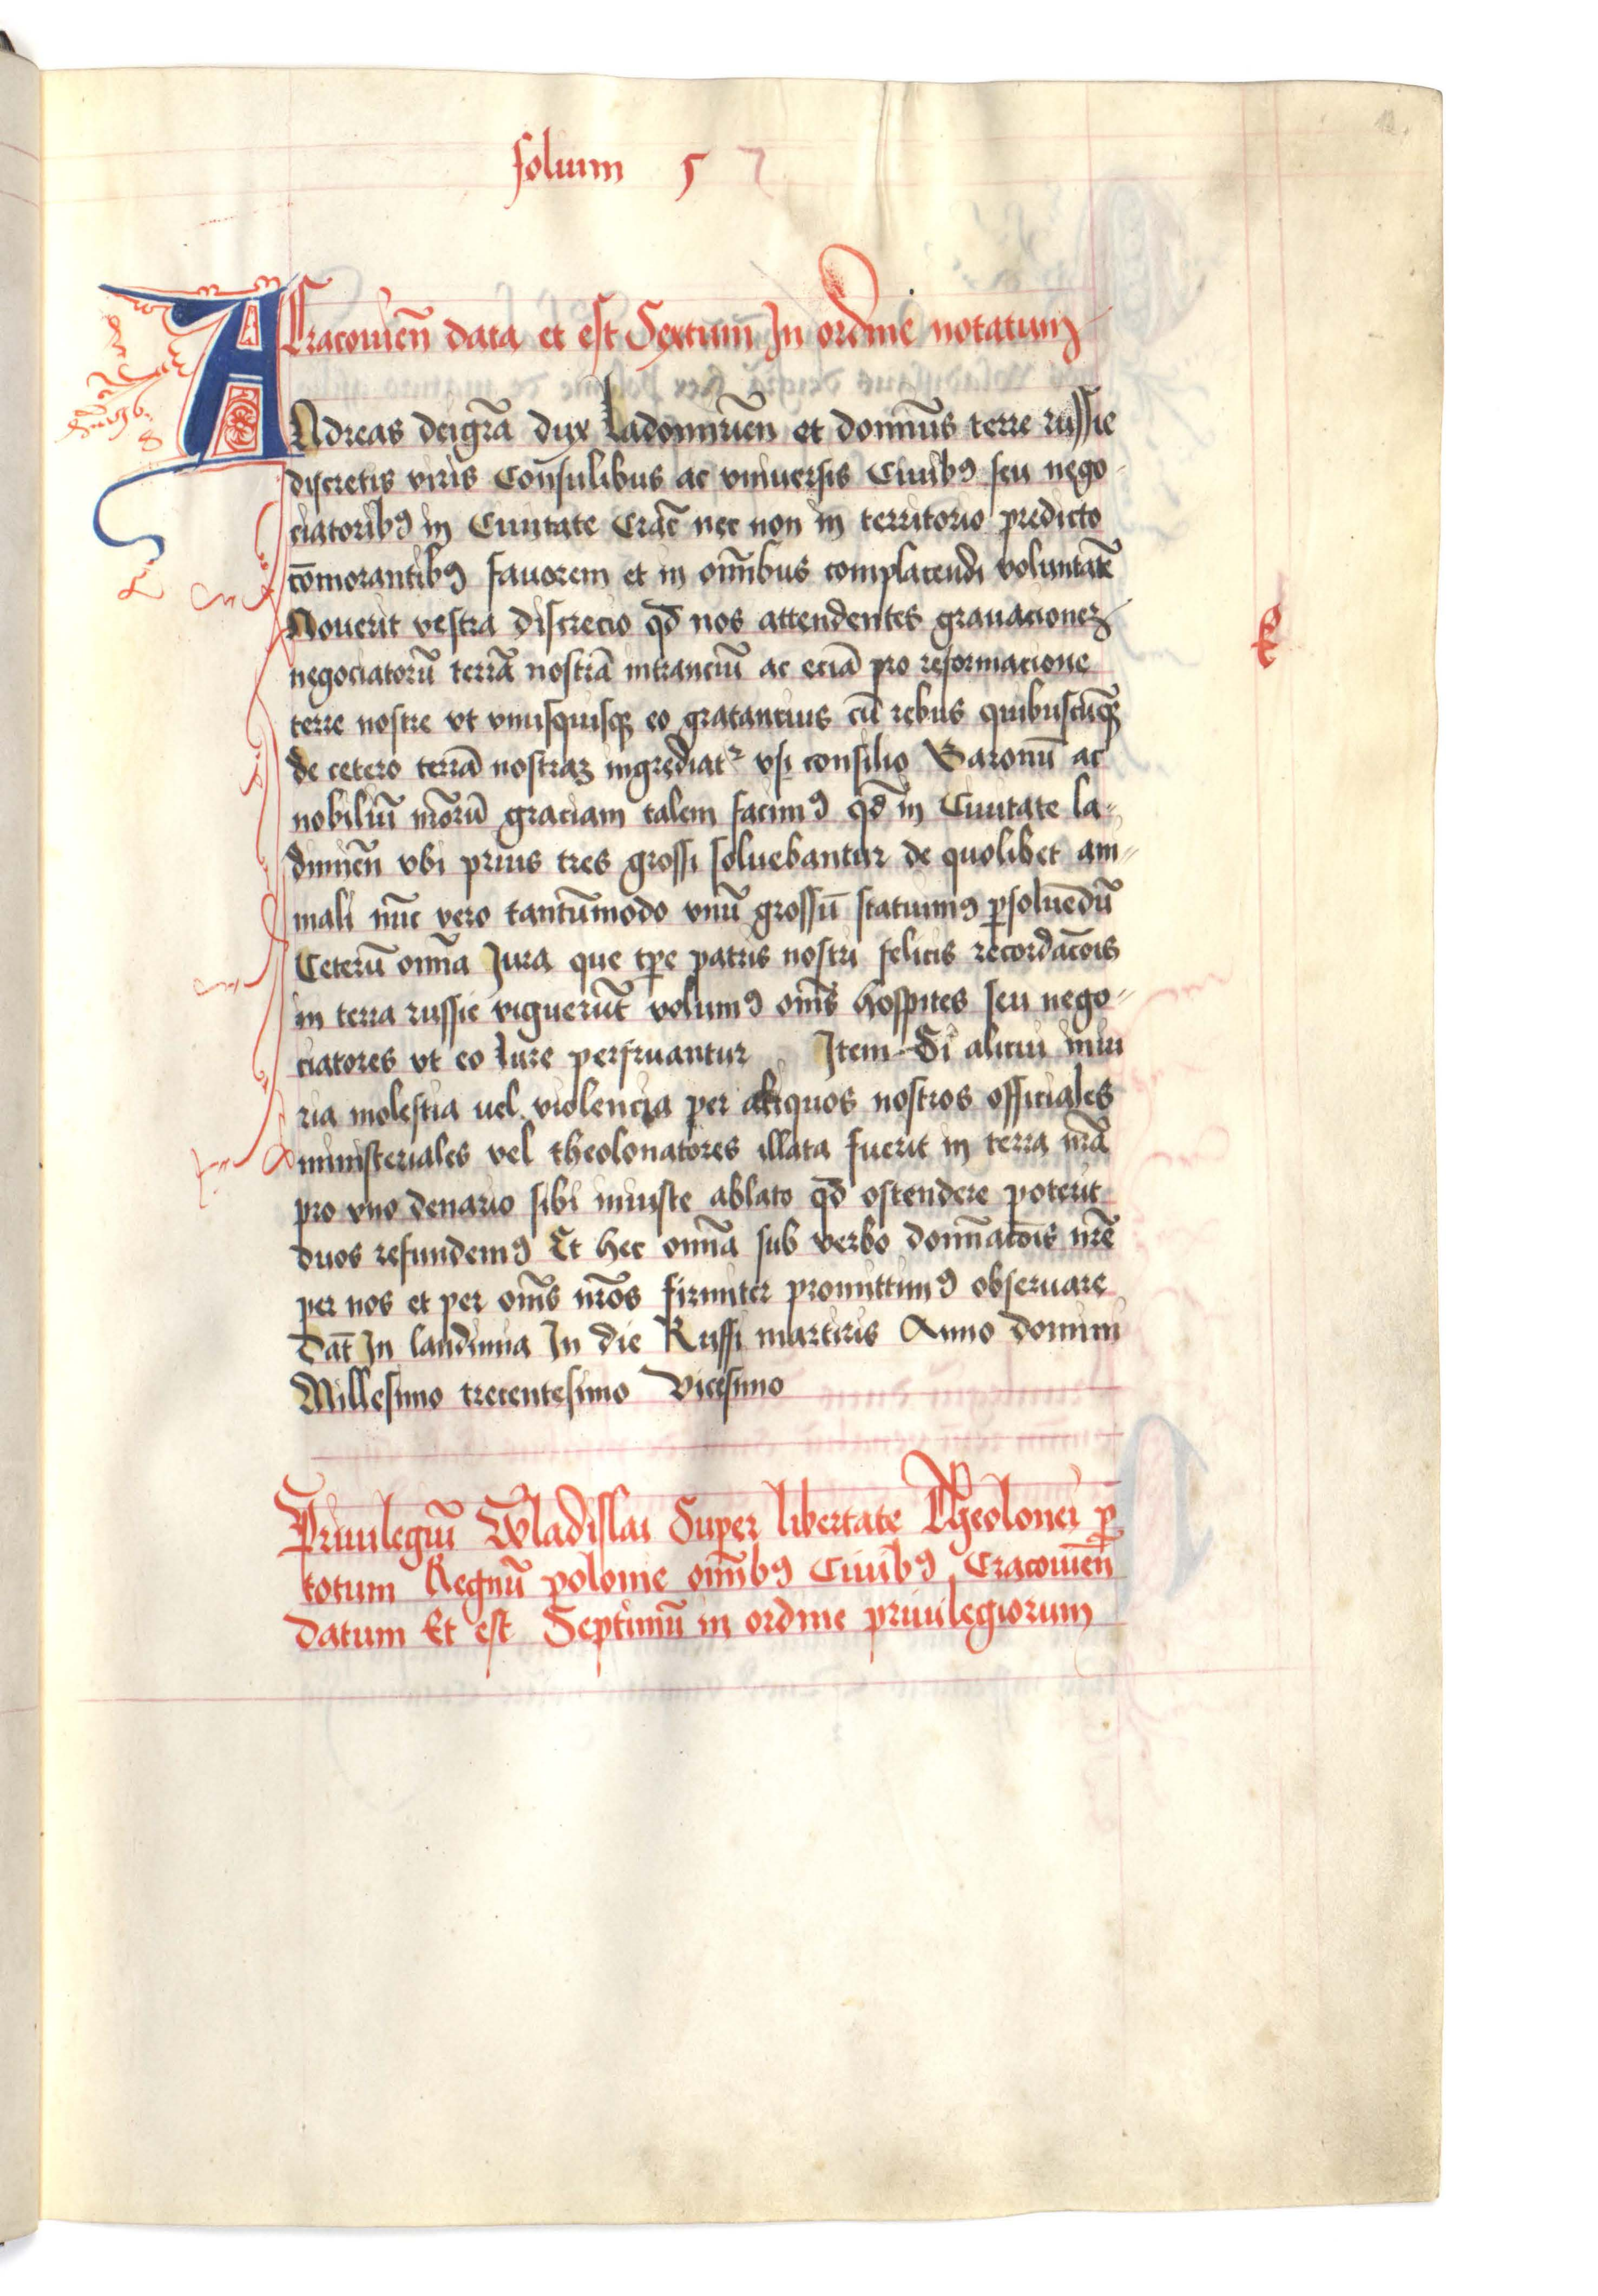 folium 5 7
Cracouien̄ data et est Sextum In ordine notatum
ANdreas deigr̄a dux ladomirien̄ et domin̄us terre russie
discretis viris Consulibus ac vniuersis Ciuibꝯ seu nego-
ciatoribꝯ in Ciuitate Crac̄ nec non in territorio predicto
cōmorantibꝯ fauorem et in om̄ibus complacendi voluntatē
Nouerit vestra discrecio qd̄ nos attendentes grauacionez
negociatorū terrā nostrā intranciū ac eciā pro reformacione
terre nostre vt vnusquisqꝫ eo gratantius cū rebus quibuscūqꝫ
de cetero terrā nostraꝫ ingrediatᷣ vsi consilio Baronū ac
nobiliū nr̄orū graciam talem facimꝯ qd̄ in Ciuitate la-
dimien̄ vbi prius tres grossi soluebantur de quolibet ani-
mali nūc vero tantūmodo vnū grossū statuimꝯ ꝑsoluēdū
Ceterū om̄ia Jura que tp̄e patris nostri felicis recordac̄ois
in terra russie viguerūt volumꝯ om̄s hospites seu nego-
ciatores vt eo Jure perfruantur Item Si alicui iniu
ria molestia uel violencia per aliquos nostros officiales
ministeriales vel theolonatores illata fuerit in terra nr̄a
pro vno denario sibi iniuste ablato qd̄ ostendere poterit
duos refundemꝯ Et hec om̄ia sub verbo domīnac̄ois nr̄e
per nos et per om̄s nr̄os firmiter promittimꝯ obseruare
Dat̄ In landimia In die Ruffi martiris Anno domini
Millesimo trecentesimo Vicesimo
Priuilegiū Wladislai Super libertate Theolonei ꝑ
totum Regnū polonie om̄ibꝯ Ciuibꝯ Cracouien̄
datum Et est Septimū in ordine priuilegiorum